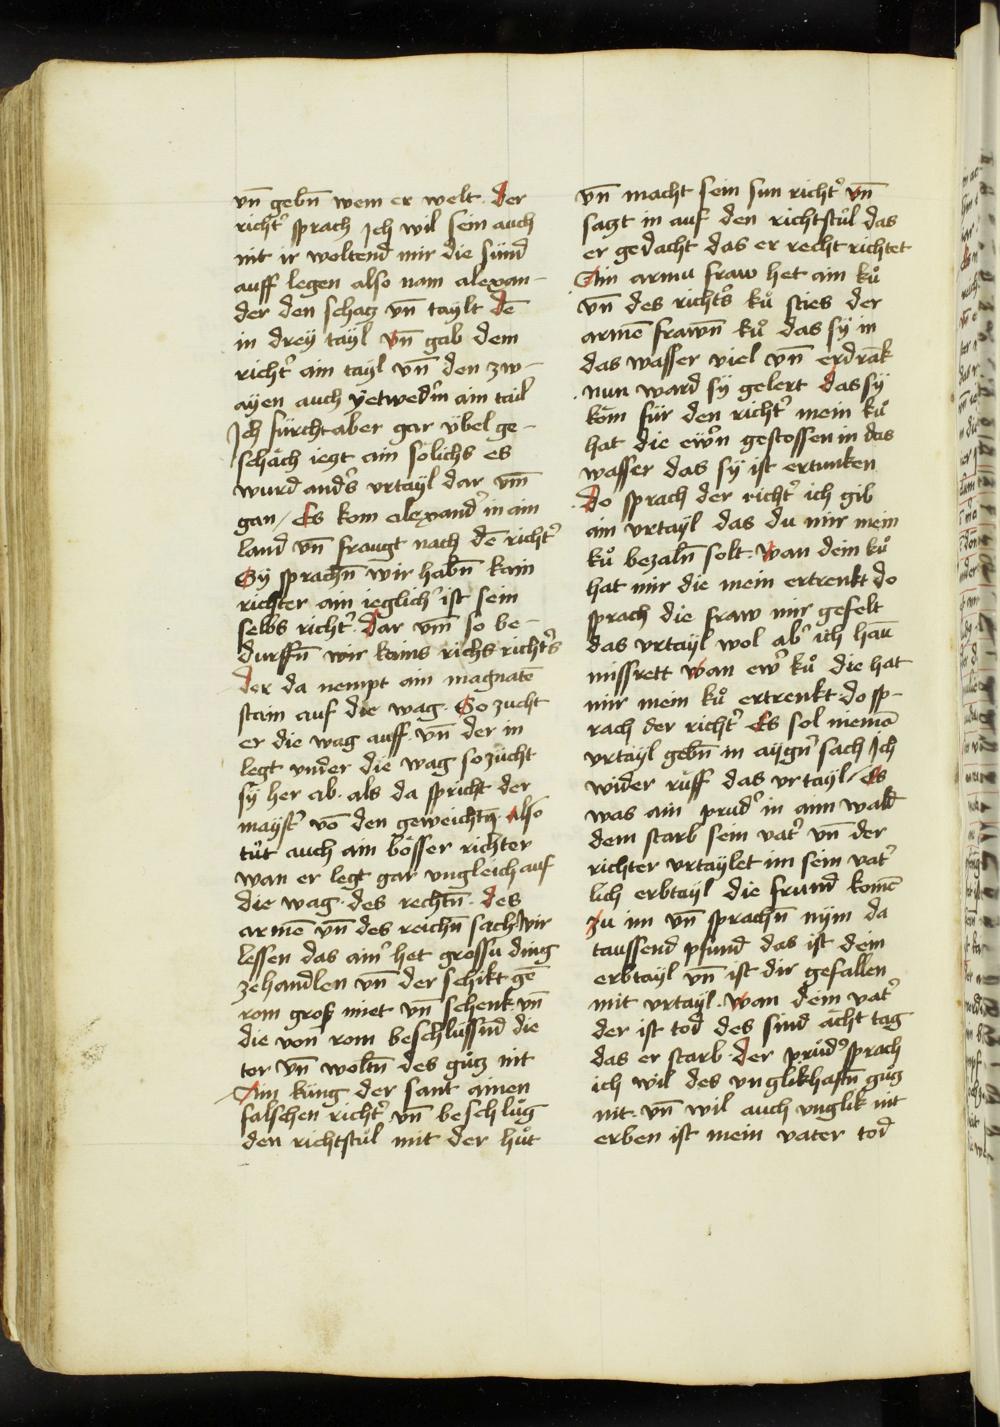 vn̄ gebn̄ wem er welt. der
richtˀ sprach Jch wil sein auch
nit ir woltend mir die sünd
auff legen also nam alexan-
der den schatz vn̄ taylt dē
in drey tayl vn̄ gab dem
richtˀ ain tayl vn̄ den zw-
ayen auch yetwedˀm ain tail
Jch fürcht aber gar übel ge-
schäch ietzt ain sölichs es
wurd andˀs vrtayl dar vm̄
gan / Es kom alexandˀ in ain
land vn̄ fraugt nach dē richtˀ
Sy sprachn̄ wir habn̄ kain
richter ain ieglichˀ ist sein
selbs richtˀ. dar vm̄ so be-
durffn̄ wir kains richs richtˀs
der da nempt ain magnatē
stain auf die wag. So zucht
er die wag auff. vn̄ der in
legt vnder die wag so zücht
sy her ab. als da spricht der
maystˀ vō den geweichtn̄. Also
tůt auch ain bösser richter
wan er legt gar vngleich auf
die wag. des rechtn̄. des
armē vn̄ des reichn̄ sach. Wir
lessen das ainˀ het grossu ding
ze handlen vn̄ der schikt gē
rom groß miet vn̄ schenk. vn̄
die von rom beschlussn̄d die
tor vn̄ woltn̄ des gůtz nit
Ain küng der fant ainen
falschen richtˀ vn̄ beschlůg
den richtstůl mit der hůt
vn̄ macht sein sun richtˀ vn̄
satzt in auf den richtstůl das
er gedächt das er recht richtet
Ain armu fraw het ain ků
vn̄ des richtˀs ků sties der
armē frawn̄ ků das sy in
das wasser viel vn̄ erdrāk
nun ward sy gelert das sy
kom für den richtˀ mein ků
hat die ewˀn gestossen in das
wasser das sy ist ertunken
Do sprach der richtˀ ich gib
ain vrtayl das du mir mein
ků bezaln̄ solt. Wan dein ků
hat mir die mein ertrenkt do
sprach die fraw mir gefelt
das vrtayl wol abˀ ich hāu
missrett wan ewˀ ků die hat
mir mein ků ertrenkt. do sp-
rach der richtˀ Es sol niemā
vrtayl gebn̄ in aygnˀ sach Jch
wider růff das vrtayl / Es
was ain průdˀ in ainn wald
dem starb sein vatˀ vn̄ der
richter vrtaylet im sein vatˀ
lich erbtayl die frund komē
zu im vn̄ sprachn̄ nym da
taussend pfund das ist dein
erbtayl vn̄ ist dir gefallen
mit vrtayl. Wan dein vatˀ
der ist tod des sind ächt tag
das er starb. der průdˀ sprach
ich wil des vnglikhaftn̄ gůtz
nit. vn̄ wil auch vnglik nit
erben ist mein vater tod